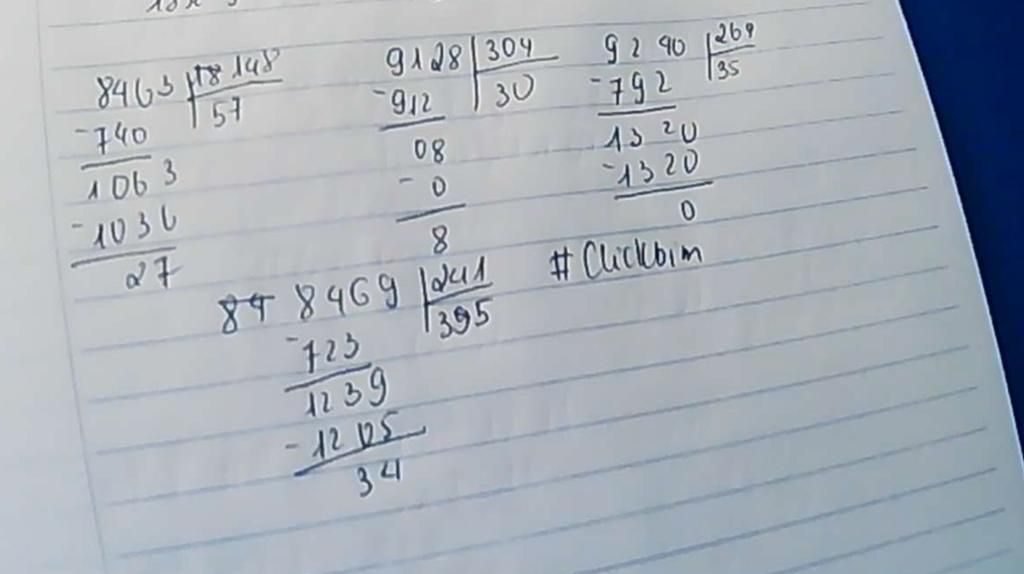 8463 148
-740 57
1063
-1036
27
9128 304
-912 30
08
-0
8
9240 264
-792 35
1320
-1320
0
8469 241
-723 35
1239
-1205
34
#Clickbim